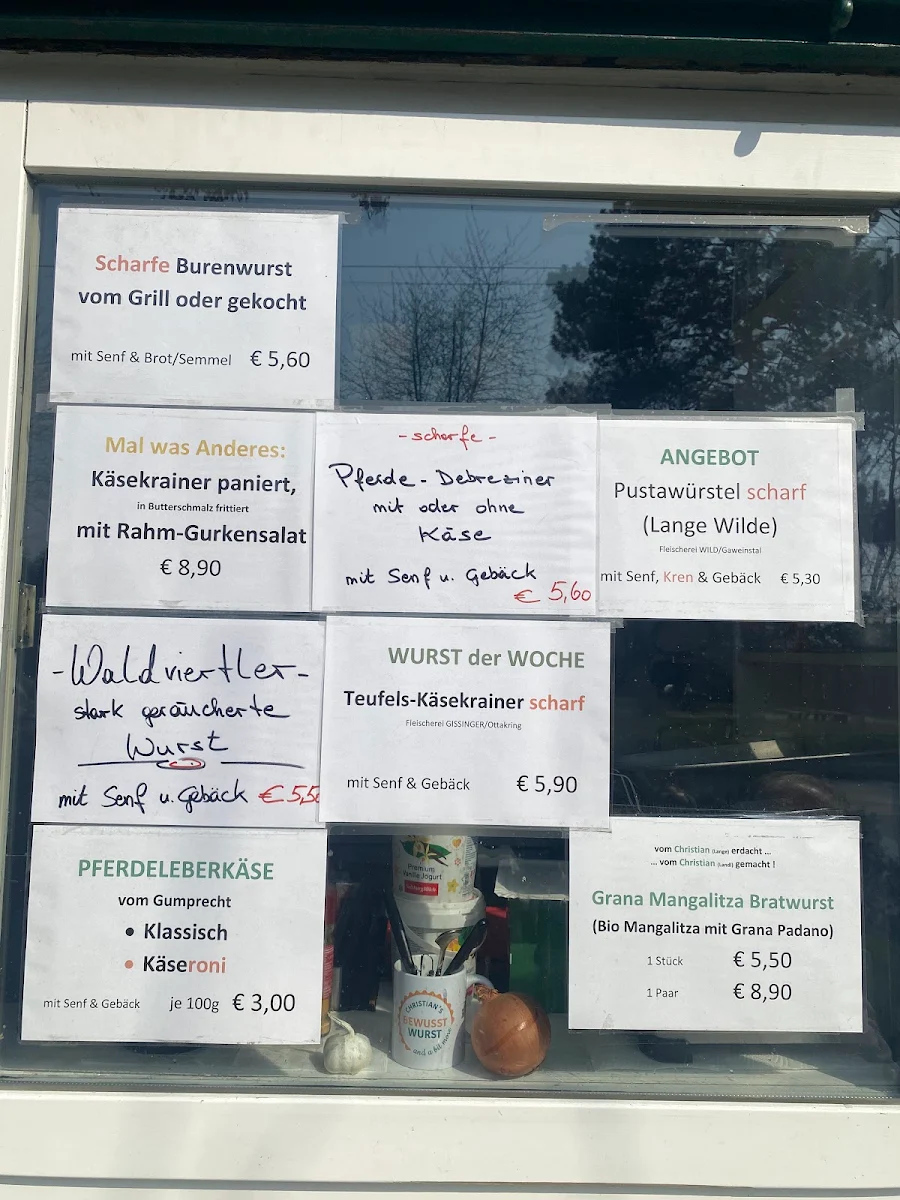 Scharfe Burenwurst
vom Grill oder gekocht
mit Senf & Brot/Semmel € 5,60
Mal was Anderes:
Käsekrainer paniert,
in Butterschmalz frittiert
mit Rahm-Gurkensalat
€ 8,90
- scharfe -
Pferde - Debreziner
mit oder ohne
Käse
mit Senf u. Gebäck
€ 5,60
ANGEBOT
Pustawürstel scharf
(Lange Wilde)
Fleischerei WILD/Gaweinstal
mit Senf, Kren & Gebäck € 5,30
- Waldviertler -
stark geräucherte
Wurst
mit Senf u. Gebäck € 5,50
WURST der WOCHE
Teufels-Käsekrainer scharf
Fleischerei GISSINGER/Ottakring
mit Senf & Gebäck € 5,90
PFERDELEBERKÄSE
vom Gumprecht
• Klassisch
• Käseroni
mit Senf & Gebäck je 100g € 3,00
Premium
Vanille Jogurt
CHRISTIAN'S
BEWUSST
WURST
and a bit more
vom Christian (Lange) erdacht ...
... vom Christian (Landl) gemacht !
Grana Mangalitza Bratwurst
(Bio Mangalitza mit Grana Padano)
1 Stück € 5,50
1 Paar € 8,90